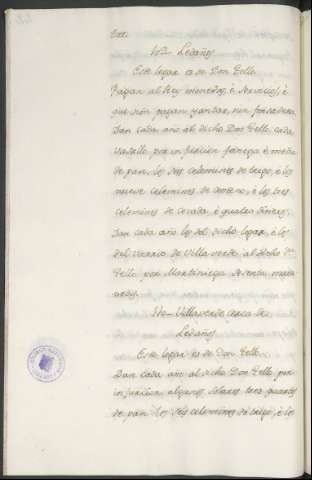 Ledaños
Este logar es de Don Tello.
Pagan al Rey monedas, é servicios, é
que non pagan yantar, nin fonsadera.
Dan cada año al dicho Don Tello cada
vasallo por infurcion fanega é media
de pan, los seis celemines de trigo, é los
nueve celemines de centeno, é los tres
celemines de cevada, é quatro dineros.
Dan cada año los del dicho logar, é los
del Varrio de Villa verde al dicho Don
Tello por Martiniega setenta mara
vedis.
Villaverde cerca de
Ledaños
Este logar es de Don Tello.
Dan cada año al dicho Don Tello por
infurcion algunos solares tres quartos
de pan los seis celemines de trigo, é los